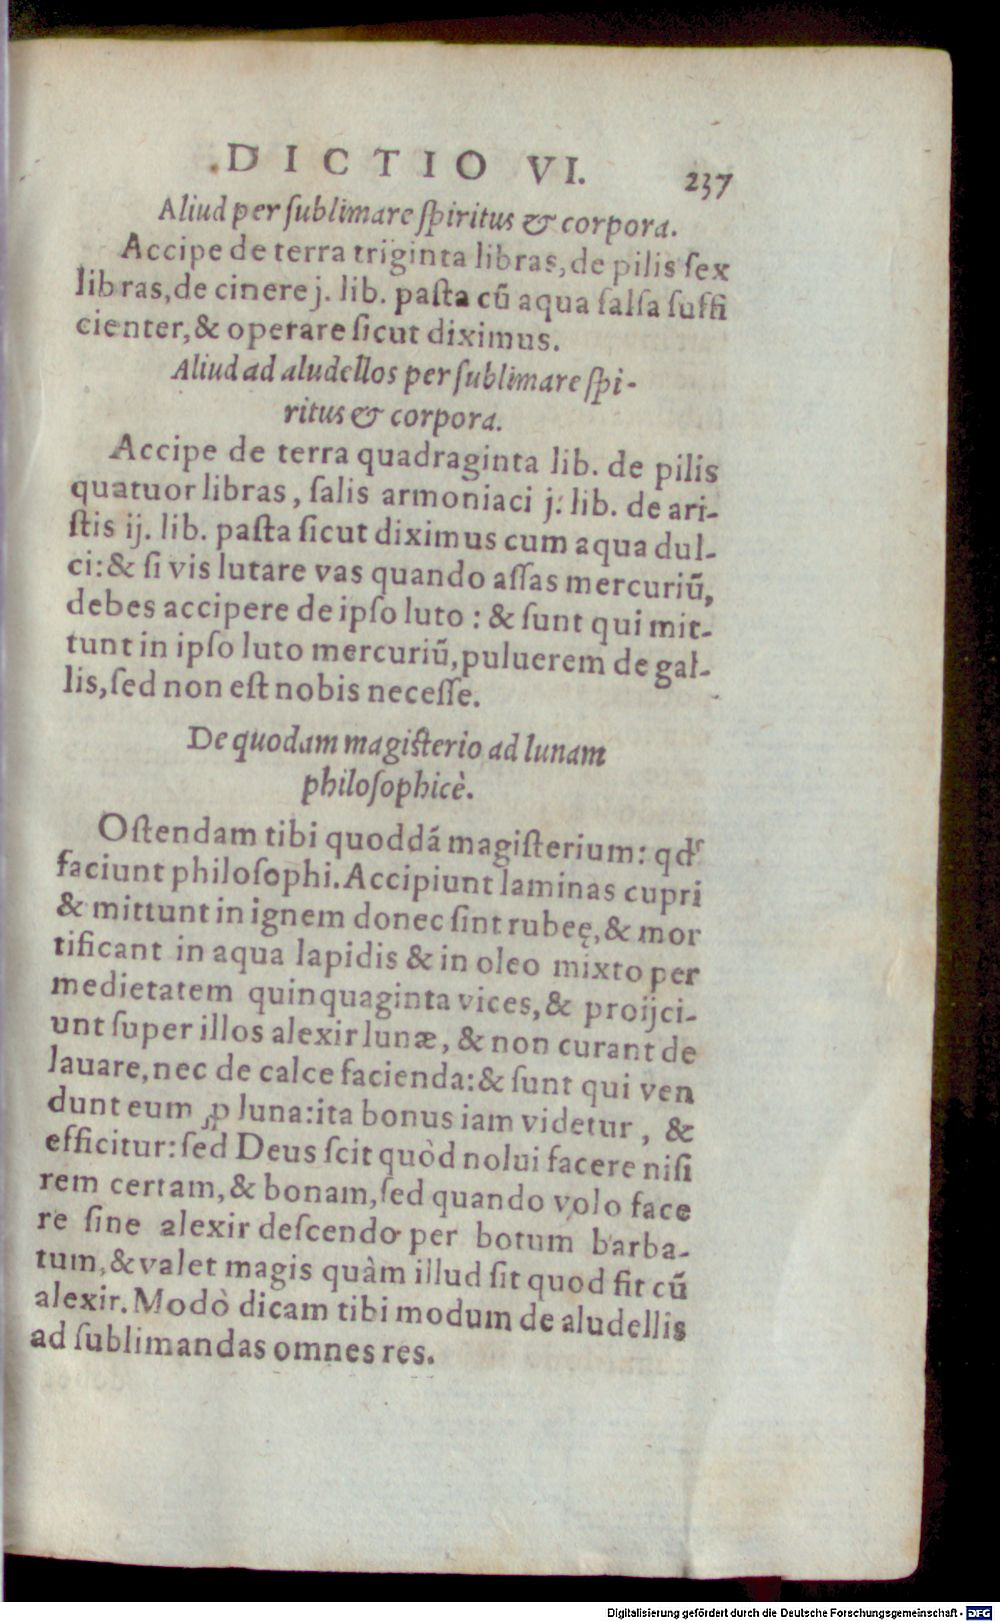 DICTIO VI. 237
Aliud per ſublimare ſpiritus & corpora.
Accipe de terra triginta libras, de pilis ſex
libras, de cinere j. lib. paſta cũ aqua ſalſa ſuffi
cienter, & operare ſicut diximus.
Aliud ad aludellos per ſublimare ſpi-
ritus & corpora.
Accipe de terra quadraginta lib. de pilis
quatuor libras, ſalis armoniaci j. lib. de ari-
ſtis ij. lib. paſta ſicut diximus cum aqua dul-
ci: & ſi vis lutare vas quando aſſas mercuriũ,
debes accipere de ipſo luto : & ſunt qui mit-
tunt in ipſo luto mercuriũ, puluerem de gal-
lis, ſed non eſt nobis neceſſe.
De quodam magiſterio ad lunam
philoſophicè.
Oſtendam tibi quoddã magiſterium: qđ
faciunt philoſophi. Accipiunt laminas cupri
& mittunt in ignem donec ſint rubeę, & mor
tificant in aqua lapidis & in oleo mixto per
medietatem quinquaginta vices, & proijci-
unt ſuper illos alexir lunæ, & non curant de
lauare, nec de calce facienda: & ſunt qui ven
dunt eum ꝓ luna: ita bonus iam videtur, &
efficitur: ſed Deus ſcit quòd nolui facere niſi
rem certam, & bonam, ſed quando volo face
re ſine alexir deſcendo per botum barba-
tum, & valet magis quàm illud ſit quod fit cũ
alexir. Modò dicam tibi modum de aludellis
ad ſublimandas omnes res.
Digitalisierung gefördert durch die Deutsche Forschungsgemeinschaft - DFG